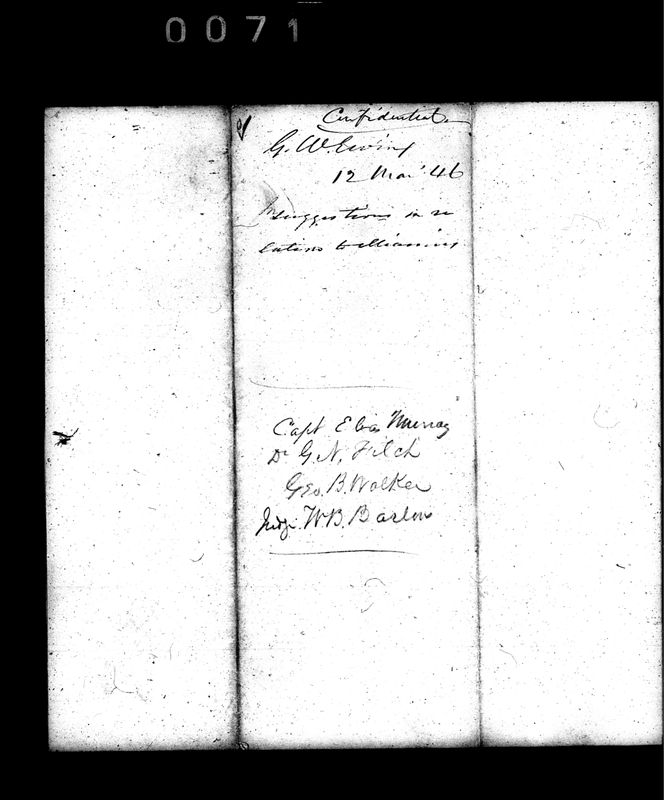 0071
Confidential
G. W. Ewing
12 Mar. 46
Suggestions in re
lation to Miamies
Capt Elias Murray
Dr G. N. Fitch
Geo. B. Walker
Judge W. B. Barlow